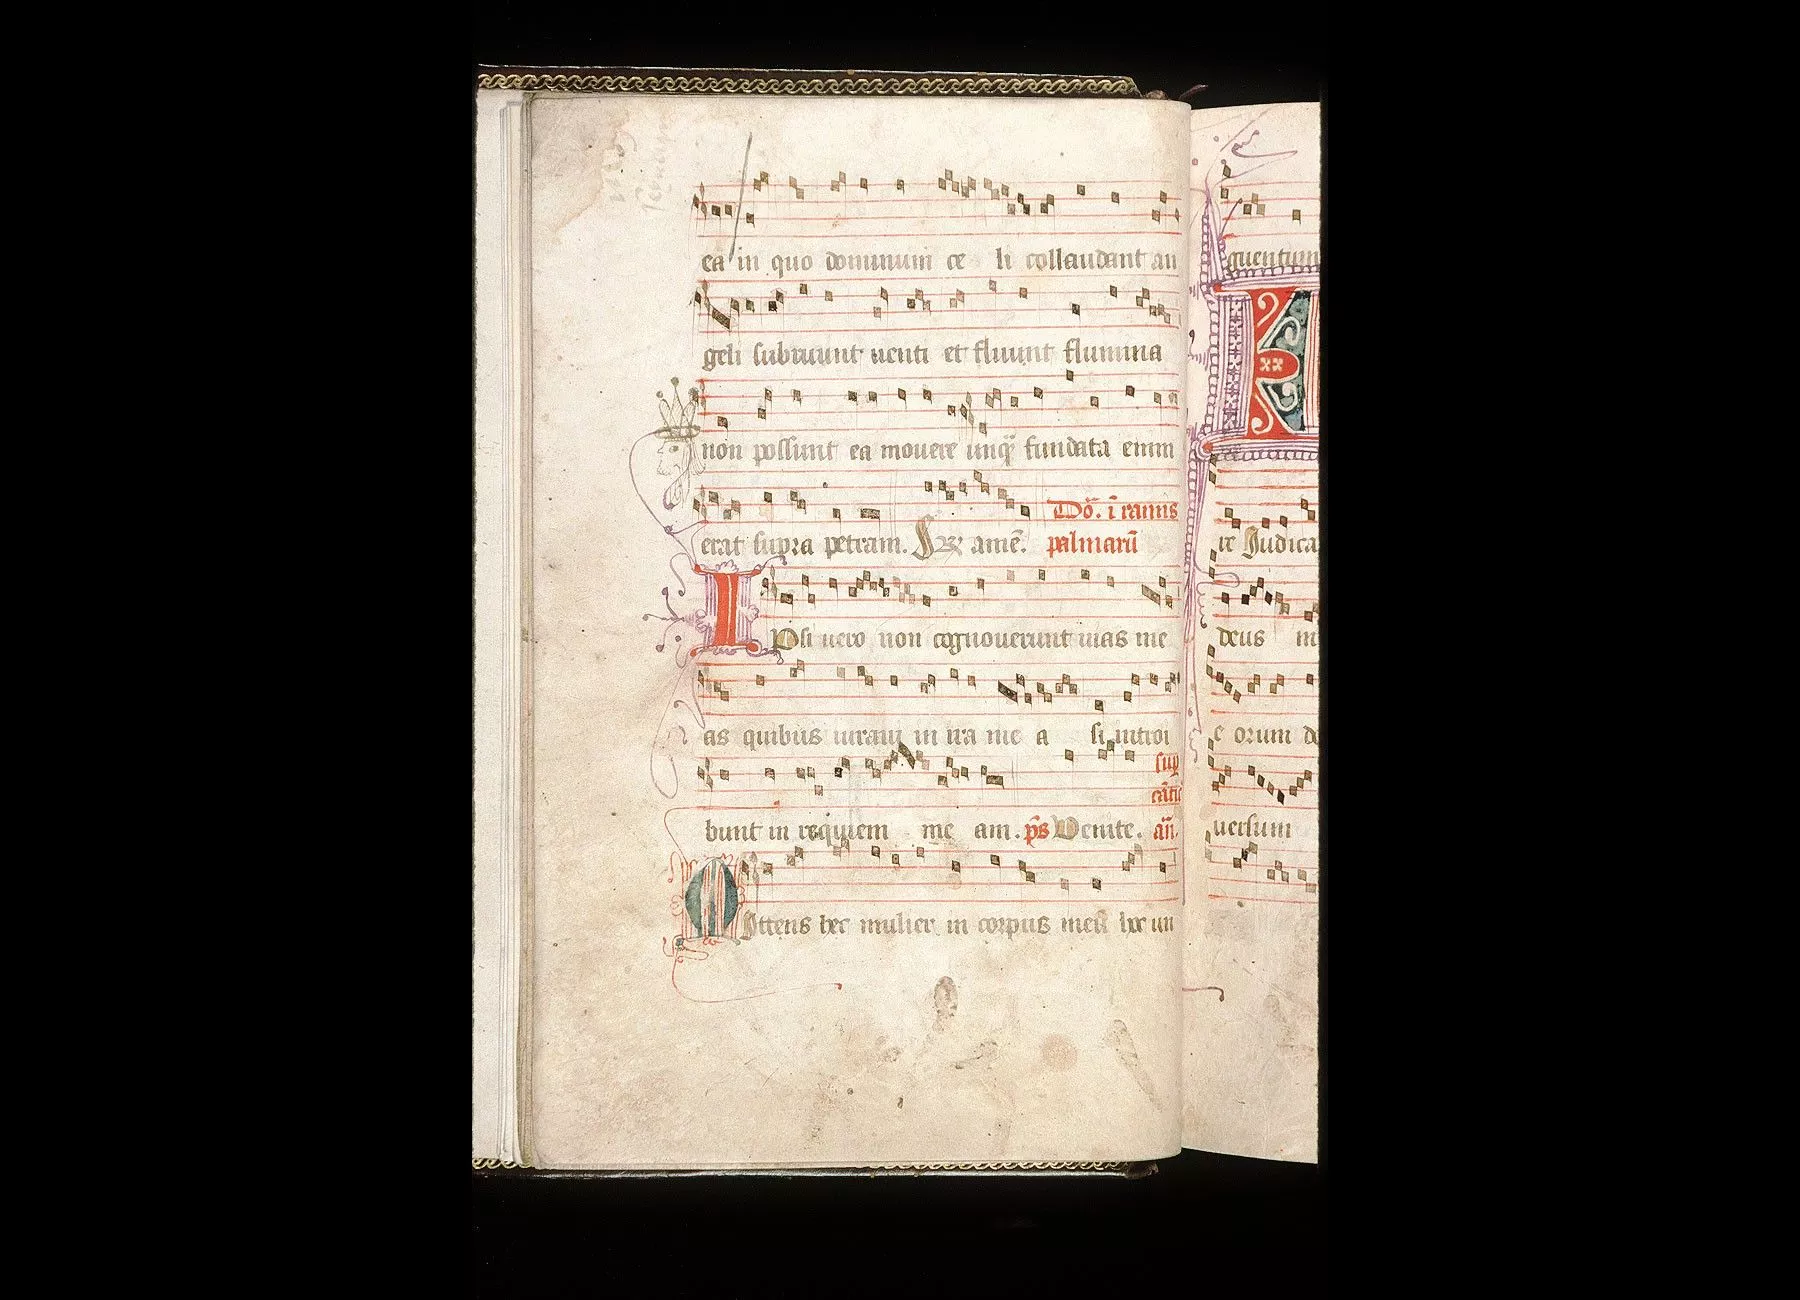 ea in quo dominum ce li collaudant an
geli subruunt uenti et fluunt flumina
non possunt ea mouere unq̃ fundata enim
erat supra petram. amẽ. Dõ. ĩ ramis
palmarũ
IPsi uero non cognouerunt uias me
as quibus iuraui in ira me a si introi
bunt in requiem me am. p̃s Uenite. añ.
sup
MIttens hec mulier in corpus meũ hoc un
guentum
re Iudica
deus m
e orum de
uersum